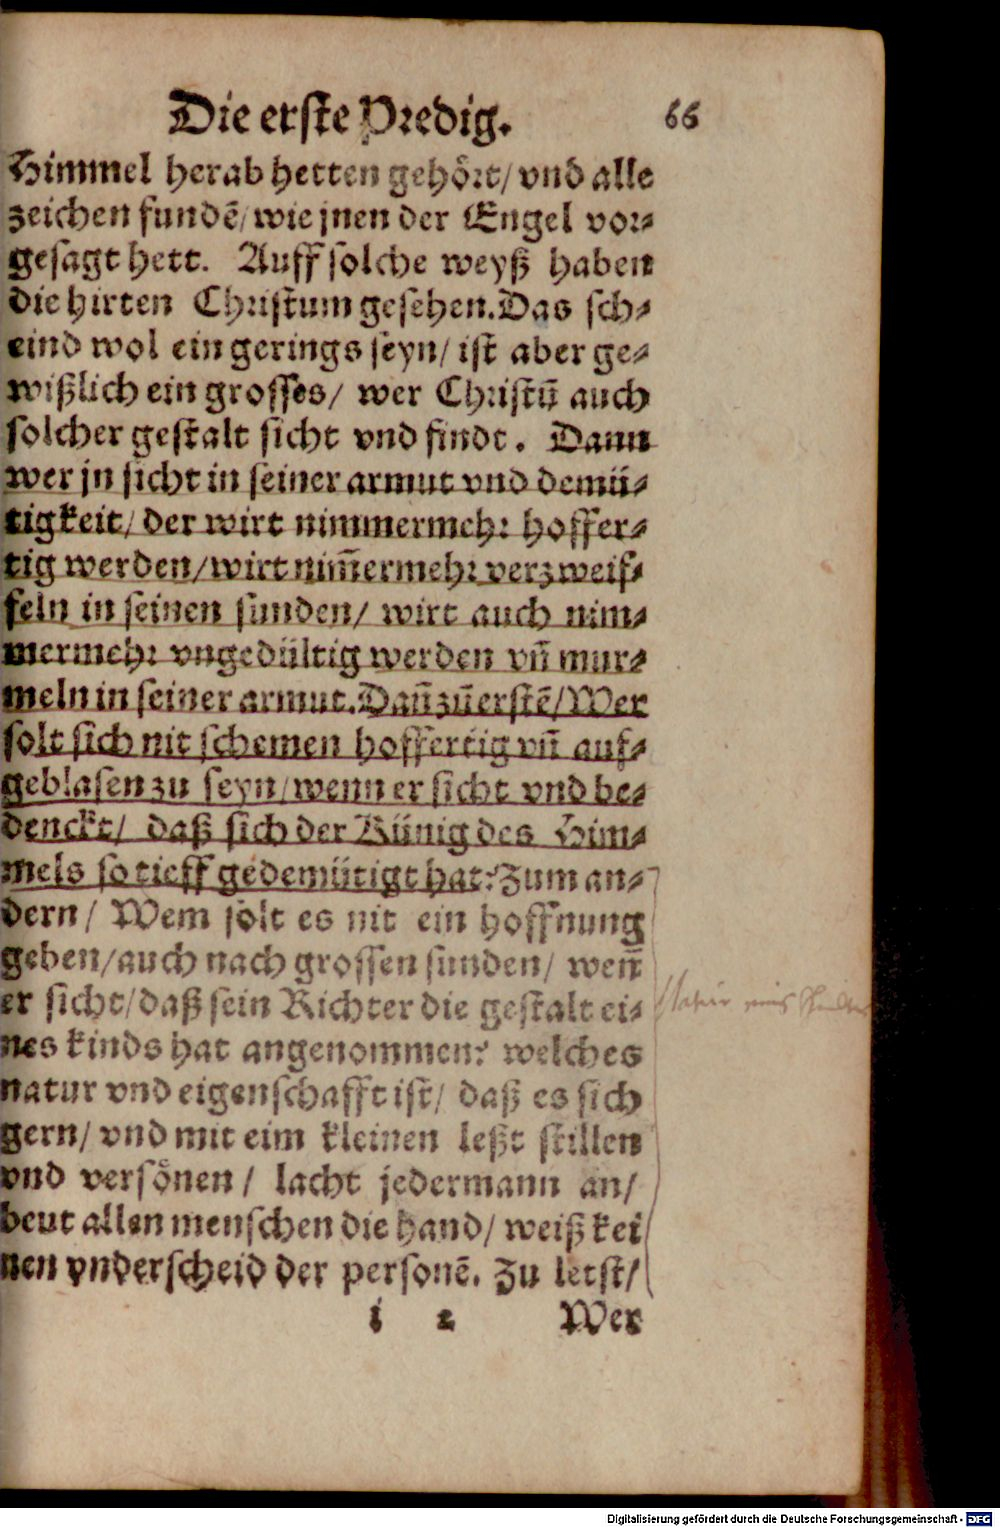 Die erste Predig. 66
Himmel herab hetten gehört/ vnd alle
zeichen fundē/ wie jnen der Engel vor⸗
gesagt hett. Auff solche weyß haben
die hirten Christum gesehen. Das sch⸗
eind wol ein gerings seyn/ ist aber ge⸗
wißlich ein grosses/ wer Christū auch
solcher gestalt sicht vnd findt. Dann
wer jn sicht in seiner armut vnd demü⸗
tigkeit/ der wirt nimmermehr hoffer⸗
tig werden/ wirt nim̄ermehr verzweif⸗
feln in seinen sunden/ wirt auch nim⸗
mermehr vngedültig werden vn̄ mur⸗
meln in seiner armut. Dan̄ zūerstē/ Wer
solt sich nit schemen hoffertig vn̄ auf⸗
geblasen zu seyn/ wenn er sicht vnd be⸗
denckt/ daß sich der Künig des Him⸗
mels so tieff gedemütigt hat? Zum an⸗
dern/ Wem solt es nit ein hoffnung
geben/ auch nach grossen sunden/ wen̄
er sicht/ daß sein Richter die gestalt ei⸗
nes kinds hat angenommen? welches
natur vnd eigenschafft ist/ daß es sich
gern/ vnd mit eim kleinen leßt stillen
vnd versönen/ lacht jedermann an/
beut allen menschen die hand/ weiß kei
nen vnderscheid der personē. Zu letst/
i 2 Wer
Digitalisierung gefördert durch die Deutsche Forschungsgemeinschaft - DFG